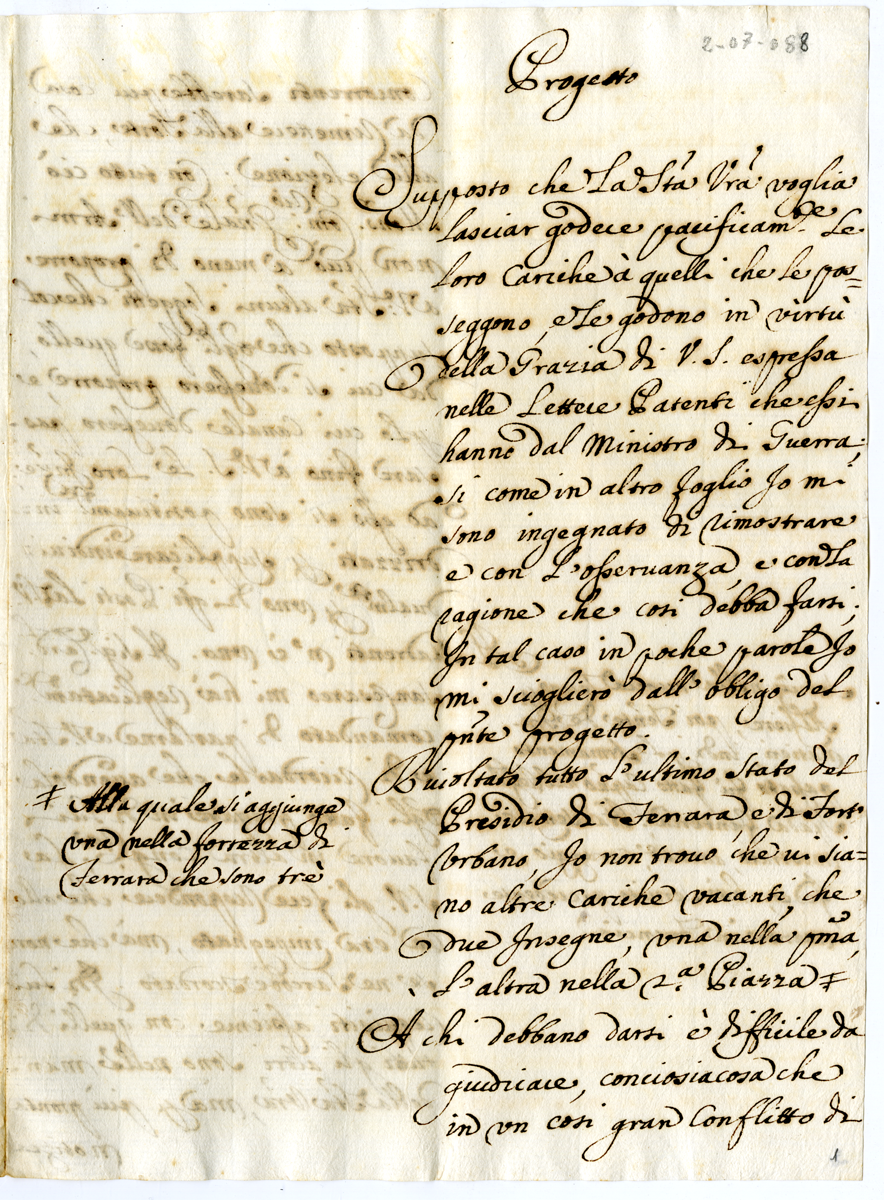 2-07-088
Progetto
Supposto che La Stà Vrà voglia
lasciar godere pacificam.te Le
loro Cariche à quelli che le pos=
seggono, e Le godono in virtù
della Grazia di V. S. espressa
nelle Lettere Patenti che essi
hanno dal Ministro di Guerra;
si come in altro foglio Io mi
sono ingegnato di dimostrare
e con L'osseruanza, e con La
ragione che cosi debba farsi;
In tal caso in poche parole Io
mi scioglierò dall'obligo del
pnte progetto.
Riuoltato tutto L'ultimo stato del
Presidio di Ferrara, e di Fort'
Vrbano, Io non trouo che ui sia=
no altre Cariche vacanti, che
due Insegne, vna nella pma,
L'altra nella 2.a Piazza ‡
‡ Alla quale si aggiunge
vna nella fortezza di
Ferrara che sono trè
A chi debbano darsi è difficile da
giudicare, conciosiacosa che
in vn cosi gran Conflitto di
1